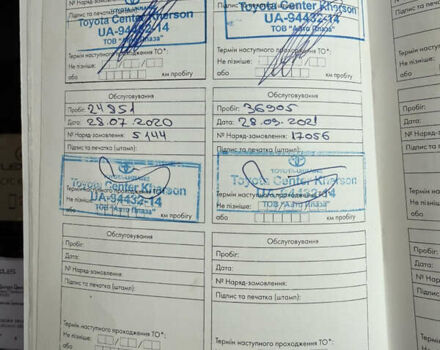 Toyota Center Kherson
UA-94432-14
ТОВ "Авто Плаза"
Термін наступного проходження ТО*:
Не пізніше:
або
км пробігу
Toyota Center Kherson
UA-94432-14
ТОВ "Авто Плаза"
Термін наступного проходження ТО*:
Не пізніше:
або
км пробігу
Обслуговування
Пробіг: 24851
Дата: 28.07.2020
№ Наряд-замовлення: 5144
Підпис та печатка (штамп):
TOYOTA-UKRAINE
Toyota Center Kherson
UA-94432-14
ТОВ "Авто Плаза"
Не пізніше:
або
км пробігу
Обслуговування
Пробіг: 36905
Дата: 28.09.2021
№ Наряд-замовлення: 17056
Підпис та печатка (штамп):
TOYOTA-UKRAINE
Toyota Center Kherson
UA-94432-14
ТОВ "Авто Плаза"
Не пізніше:
або
км пробігу
Обслуговування
Пробіг:
Дата:
№ Наряд-замовлення:
Підпис та печатка (штамп):
Термін наступного проходження ТО*:
Не пізніше:
або
км пробігу
Обслуговування
Пробіг:
Дата:
№ Наряд-замовлення:
Підпис та печатка (штамп):
Термін наступного проходження ТО*:
Не пізніше:
або
км пробігу